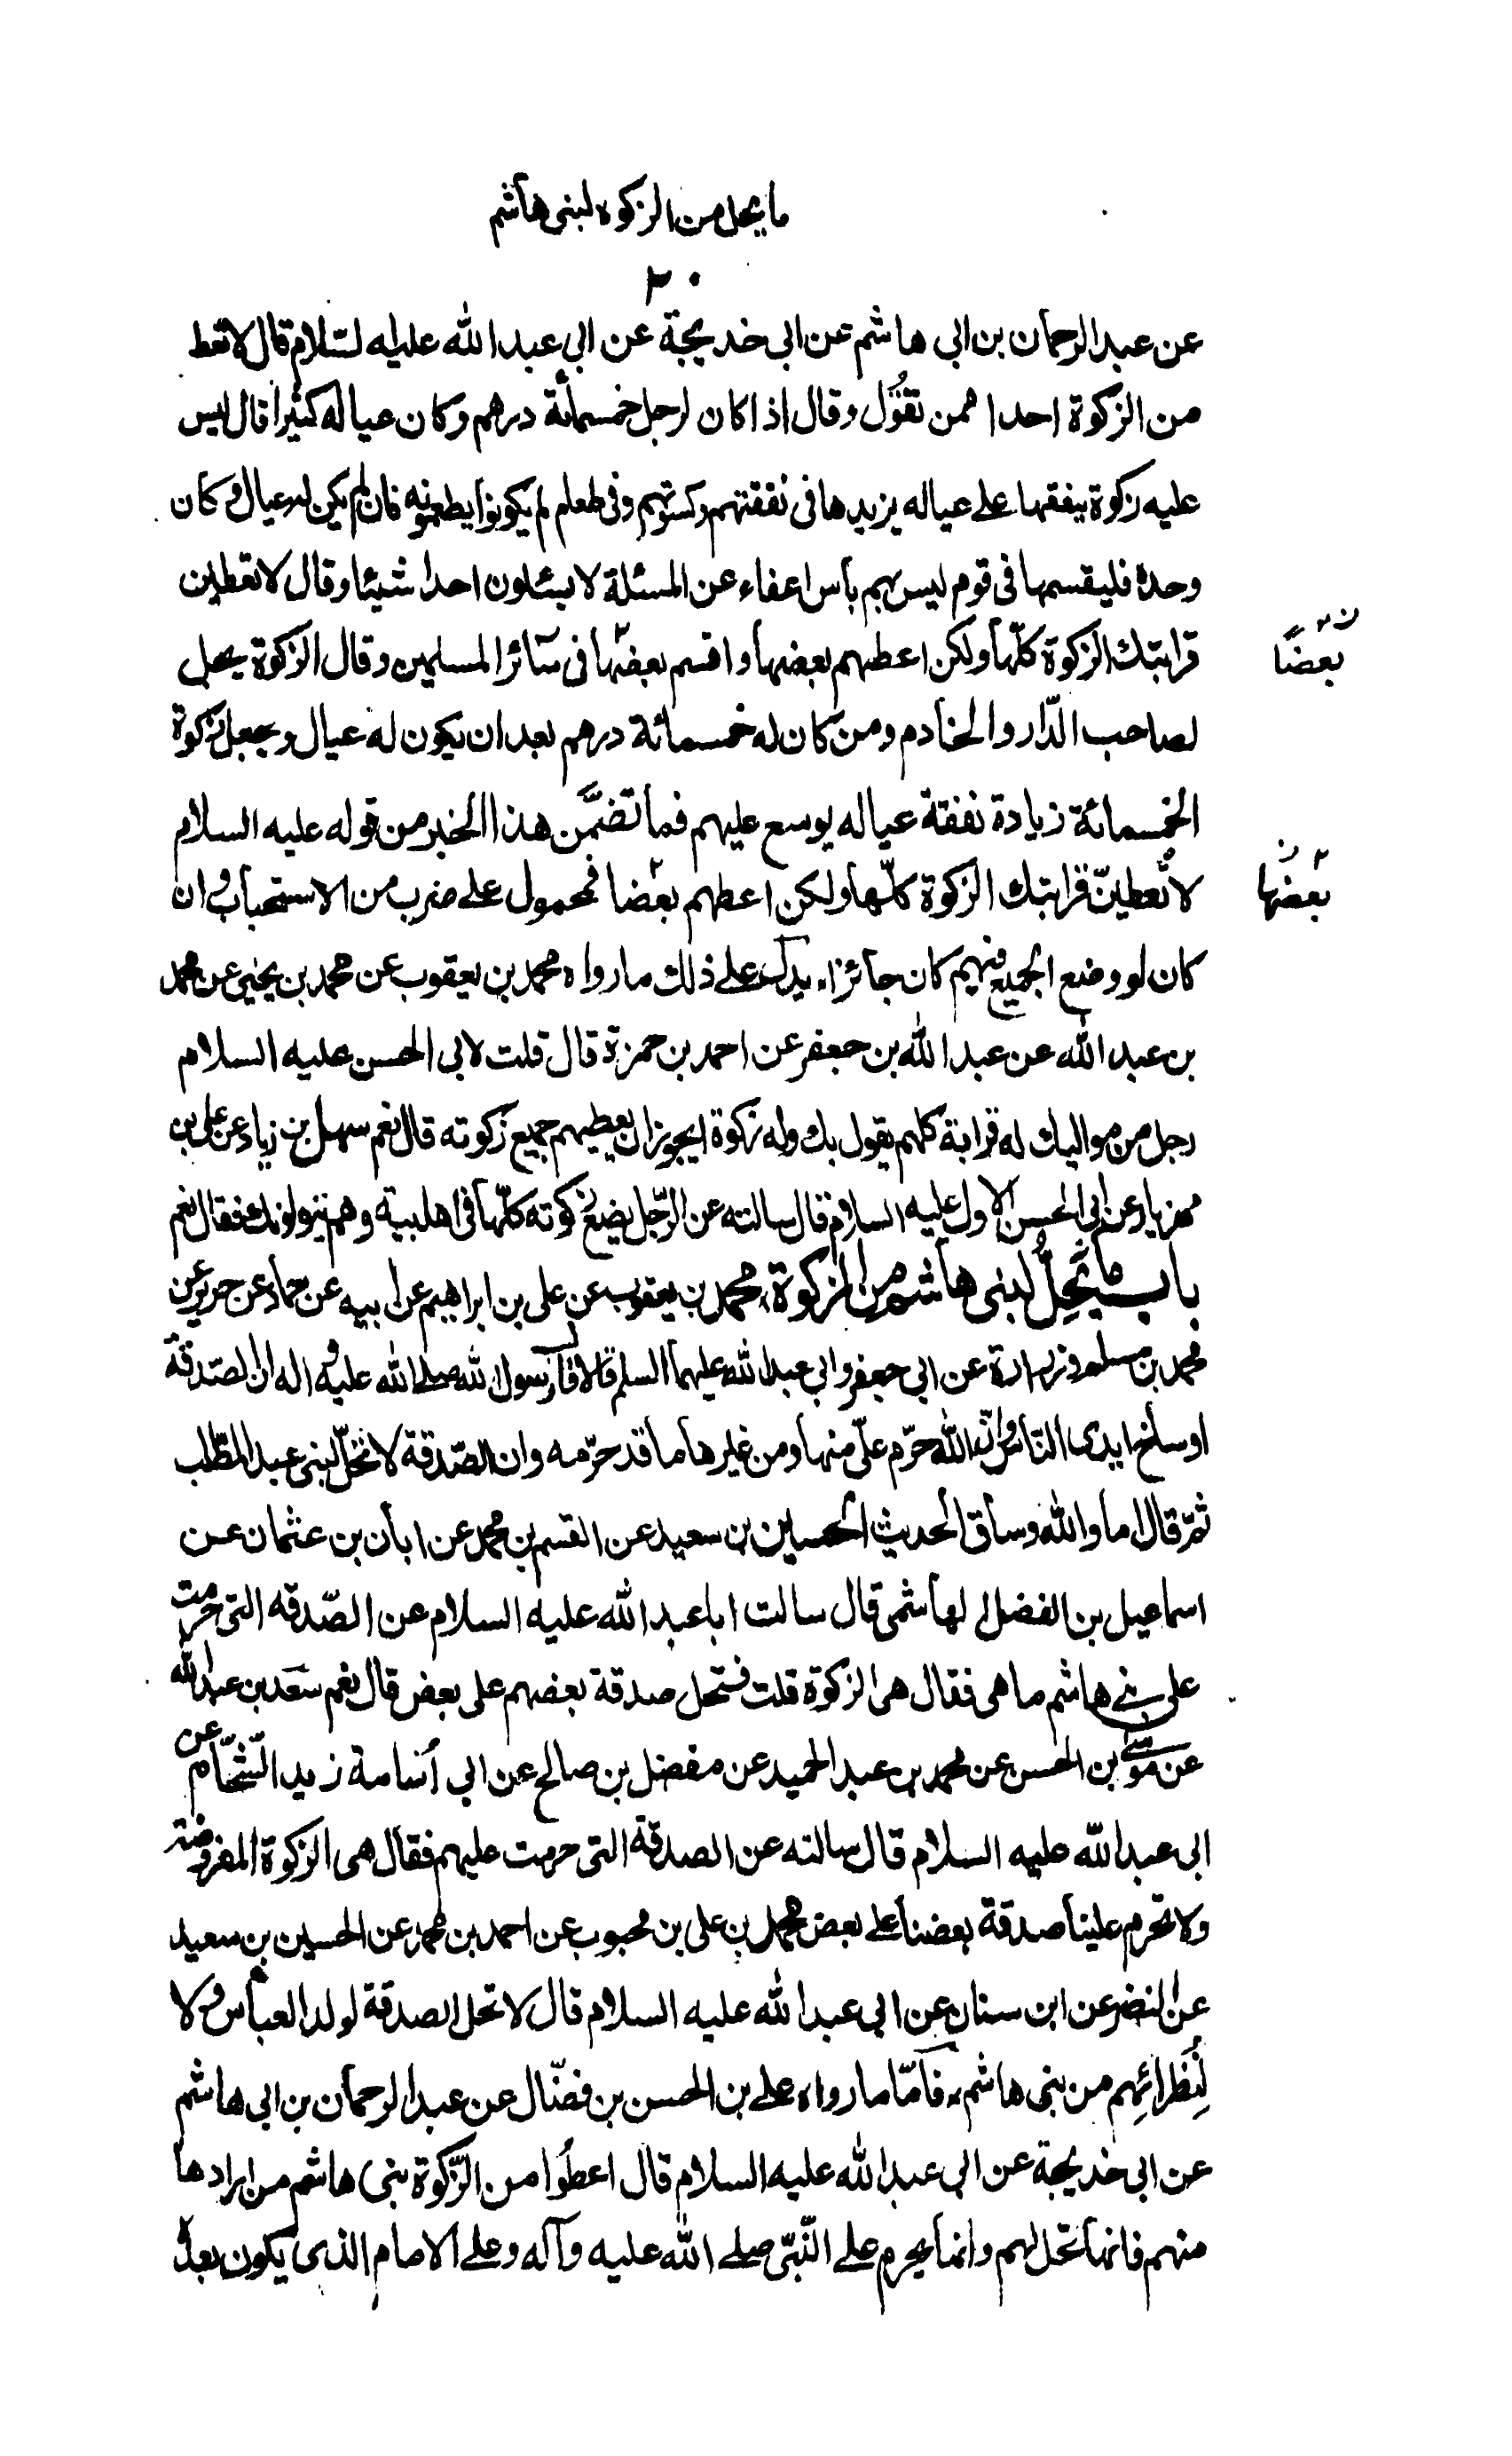 ما يحل من الزكوة لبنى هاشم
٣٠
عن عبد الرحمان بن ابى هاشم عن ابى خديجة عن ابى عبد الله عليه السلام قال لا تعط
من الزكوة احدا ممن تعول وقال اذا كان لرجل خمسمأة درهم وكان عياله كثيرا قال ليس
عليه زكوة ينفقها على عياله يزيدها فى نفقتهم وكسوتهم وفى طعام لم يكونوا يطعمونه فان لم يكن له عيال وكان
وحده فليقسمها فى قوم ليس بهم بأس اعفاء عن المسئلة لا يسئلون احدا شيئا وقال لا تعطين
قرابتك الزكوة كلّها ولكن اعطهم بعضها واقسم بعضها فى سائر المسلمين وقال الزكوة يحل
بعضًا
لصاحب الدّار والخادم ومن كان له خمسمائة درهم بعد ان يكون له عيال ويجعل زكوة
الخمسمائة زيادة نفقة عياله يوسع عليهم فما تضمَّن هذا الخبر من قوله عليه السلام
لا تُعطينّ قرابتك الزكوة كلّها ولكن اعطهم بعضا فمحمول على ضرب من الاستحباب وان
بعضها
كان لو وضع الجميع فيهم كان جائزا، يدل على ذلك ما رواه محمد بن يعقوب عن محمد بن يحيى عن محمد
بن عبد الله عن عبد الله بن جعفر عن احمد بن حمزة قال قلت لابى الحسن عليه السلام
رجل من مواليك له قرابة كلهم يقول بك وله زكوة ايجوز ان يعطيهم جميع زكوته قال نعم سهل بن زياد عن على بن
مهزيار عن ابى الحسن الاول عليه السلام قال سالته عن الرّجل يضع زكوته كلّها فى اهل بيته وهم يتولونك فقال نعم
باب ما تَحِلُّ لبنى هاشم من الزكوة، محمد بن يعقوب عن على بن ابراهيم عن ابيه عن حماد عن حريز عن
محمد بن مسلم وزرارة عن ابى جعفر وابى عبد الله عليهما السلم قالا قال رسول الله صلى الله عليه واله ان الصّدقة
اوساخ ايدى النّاس وانّ الله حرّم علىّ منها ومن غيرها ما قد حرّمه وان الصّدقة لا تحلّ لبنى عبد المطّلب
ثمّ قال اما والله وساق الحديث الحسين بن سعيد عن القسم بن محمد عن ابان بن عثمان عن
اسماعيل بن الفضل الهاشمى قال سالت ابا عبد الله عليه السلام عن الصّدقه التى حرمت
على بنى هاشم ما هى فقال هى الزكوة قلت فتحل صدقة بعضهم على بعض قال نعم سعد بن عبد الله
عن موسى بن الحسن عن محمد بن عبد الحميد عن مفضل بن صالح عن ابى أسامة زيد الشّحّام عن
ابى عبد الله عليه السلام قال سالته عن الصدقة التى حرمت عليهم فقال هى الزكوة المفروضة
ولا تحرم علينا صدقة بعضنا على بعض محمد بن على بن محبوب عن احمد بن محمد عن الحسين بن سعيد
عن النضر عن ابن سنان عن ابى عبد الله عليه السلام قال لا تحل الصدقة لولد العباس ولا
لِنُظَرائهِم من بنى هاشم، فامّا ما رواه على بن الحسن بن فضّال عن عبد الرحمان بن ابى هاشم
عن ابى خديجة عن ابى عبد الله عليه السلام قال اعطُوا من الزّكوة بنى هاشم من ارادها
منهم فانها تحل لهم وانما يحرم على النّبىّ صلى الله عليه وآله وعلى الامام الذى يكون بعده